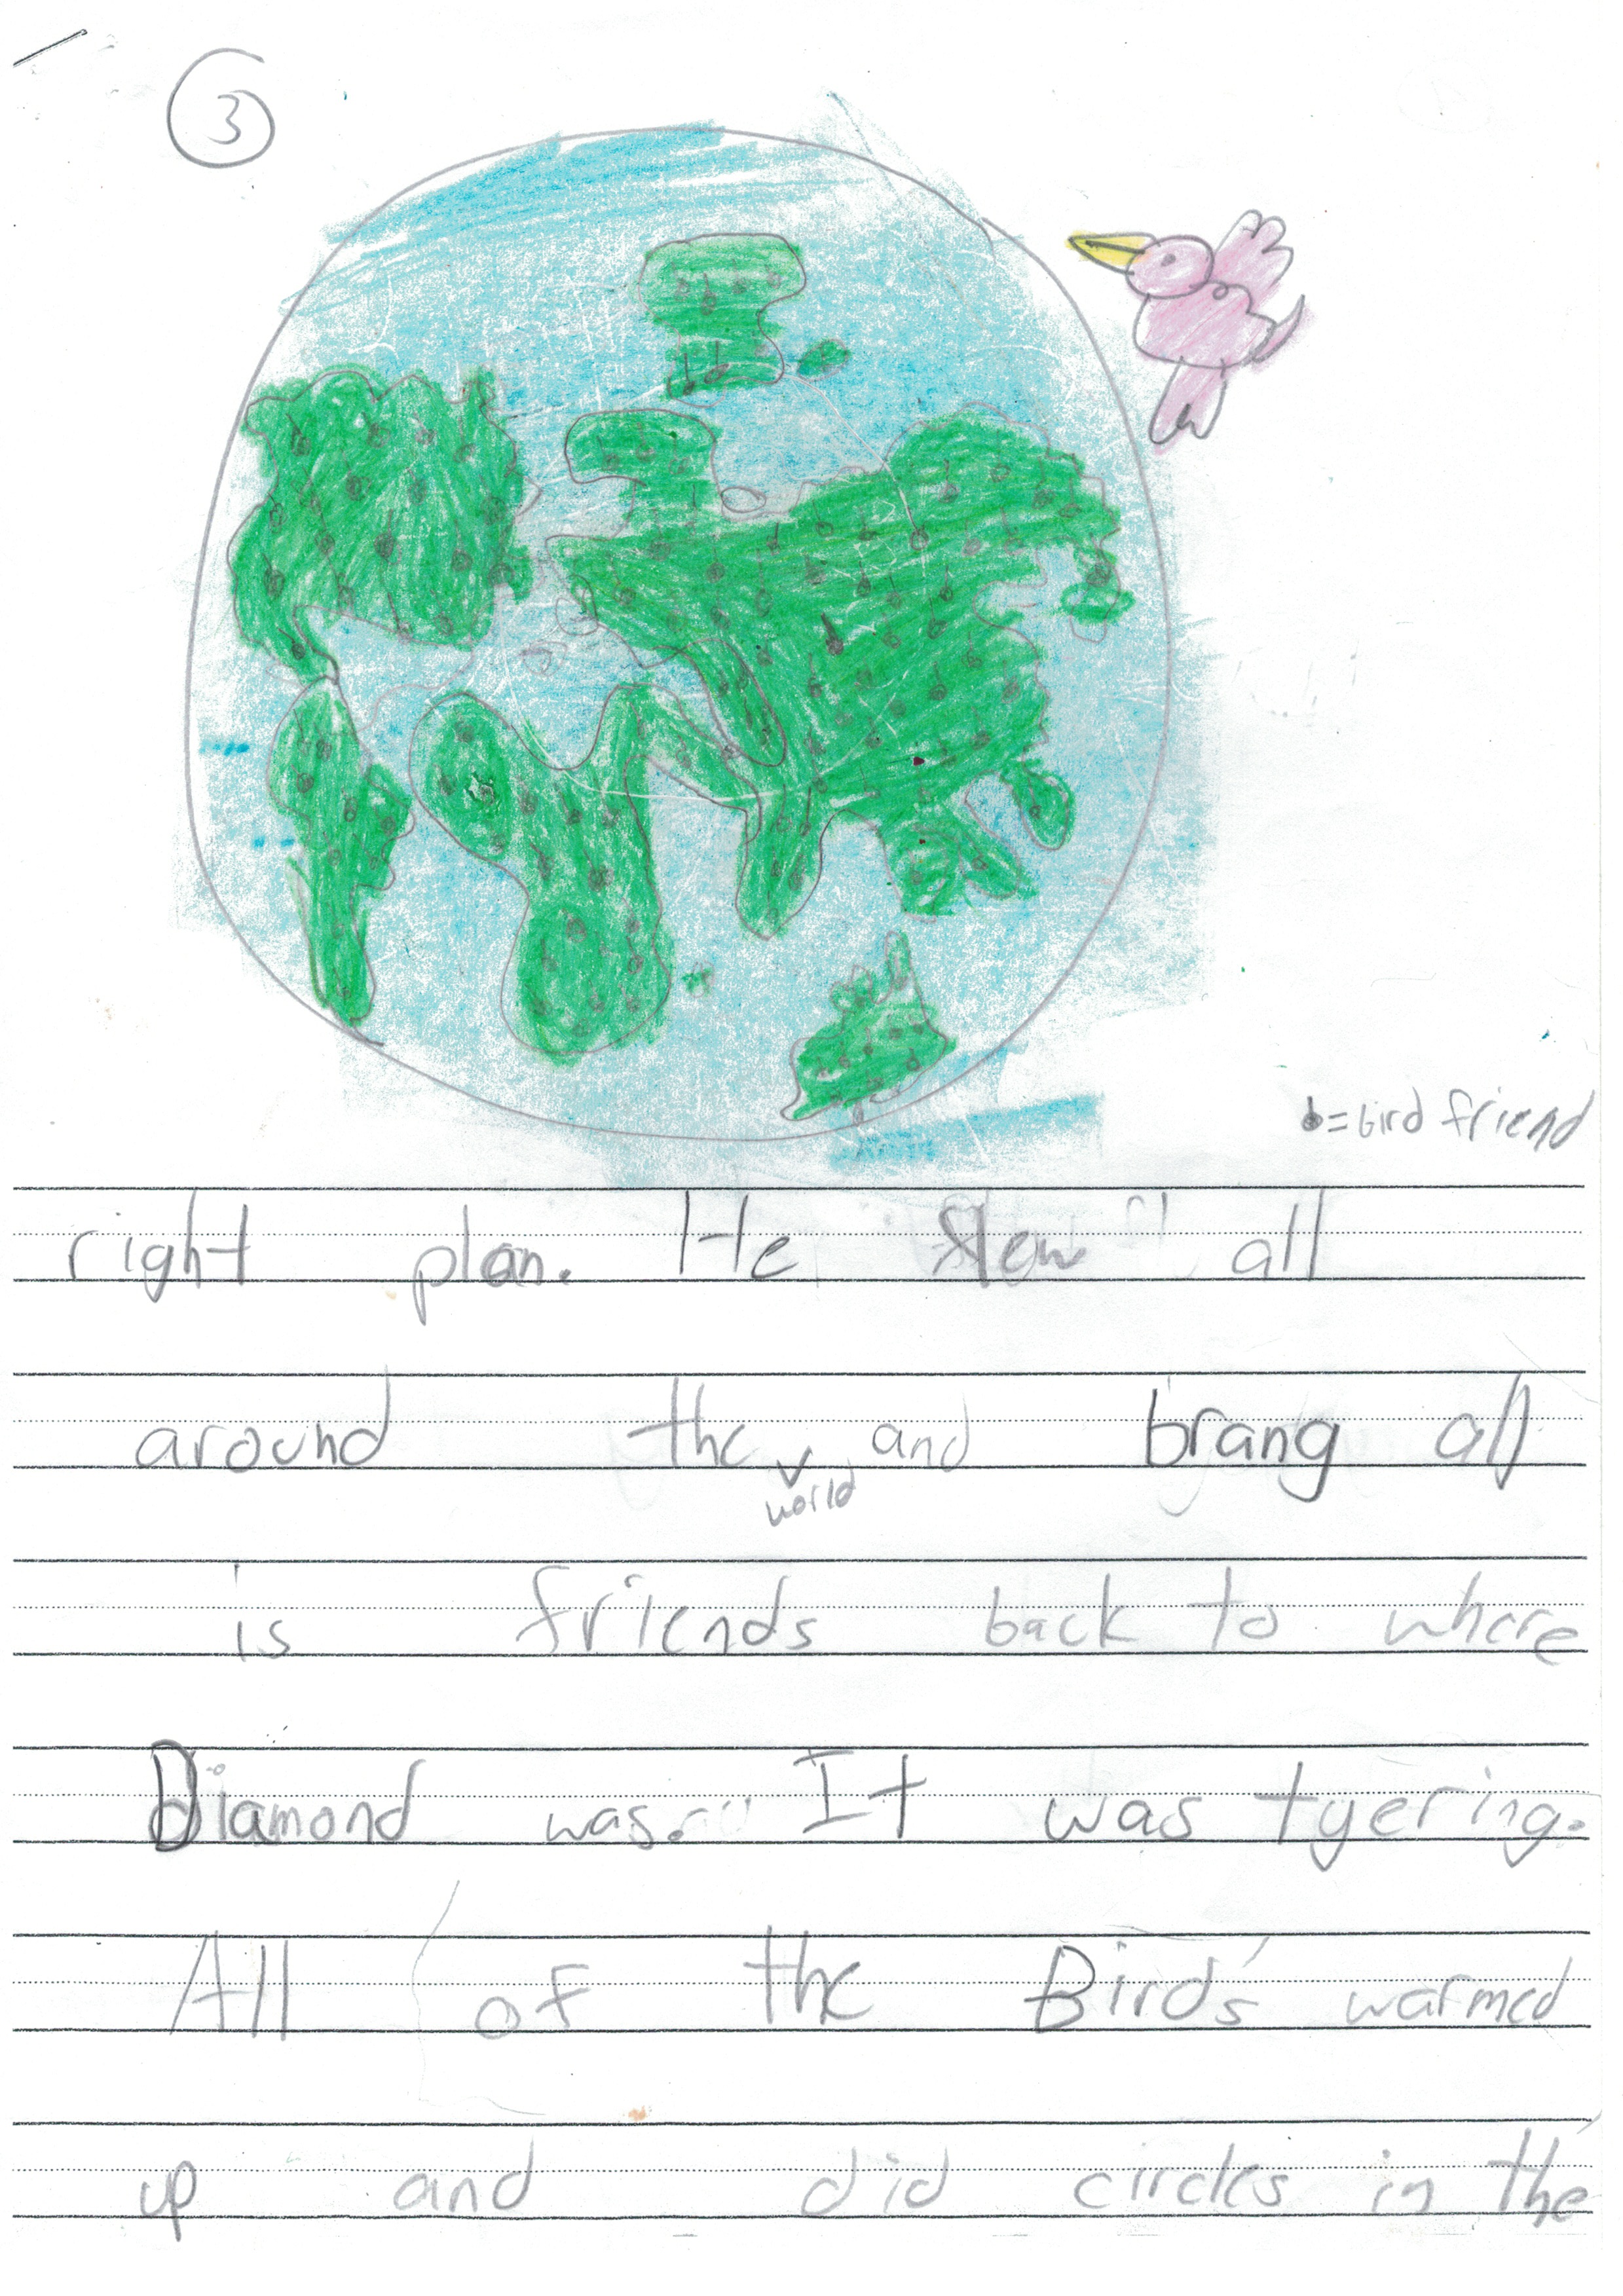 3
=bird friend
right plan. He flew all
around the world and brang all
is friends back to where
Diamond was. It was tyering.
All of the Bird's warmed
up and did circles in the